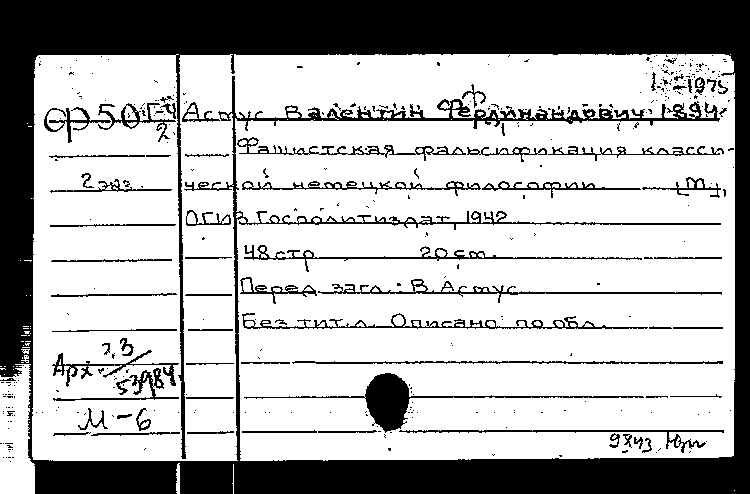 -1975
ср50 Г-4/2 Асмус, Валентин Фердинандович, 1894-
Фашистская фальсификация класси-
2 экз. ческой немецкой философии. [М.],
ОГИЗ Госполитиздат, 1942
48 стр 20 см.
Перед загл.: В. Асмус
Без тит. л. Описано по обл.
Арх. 53984
М-6